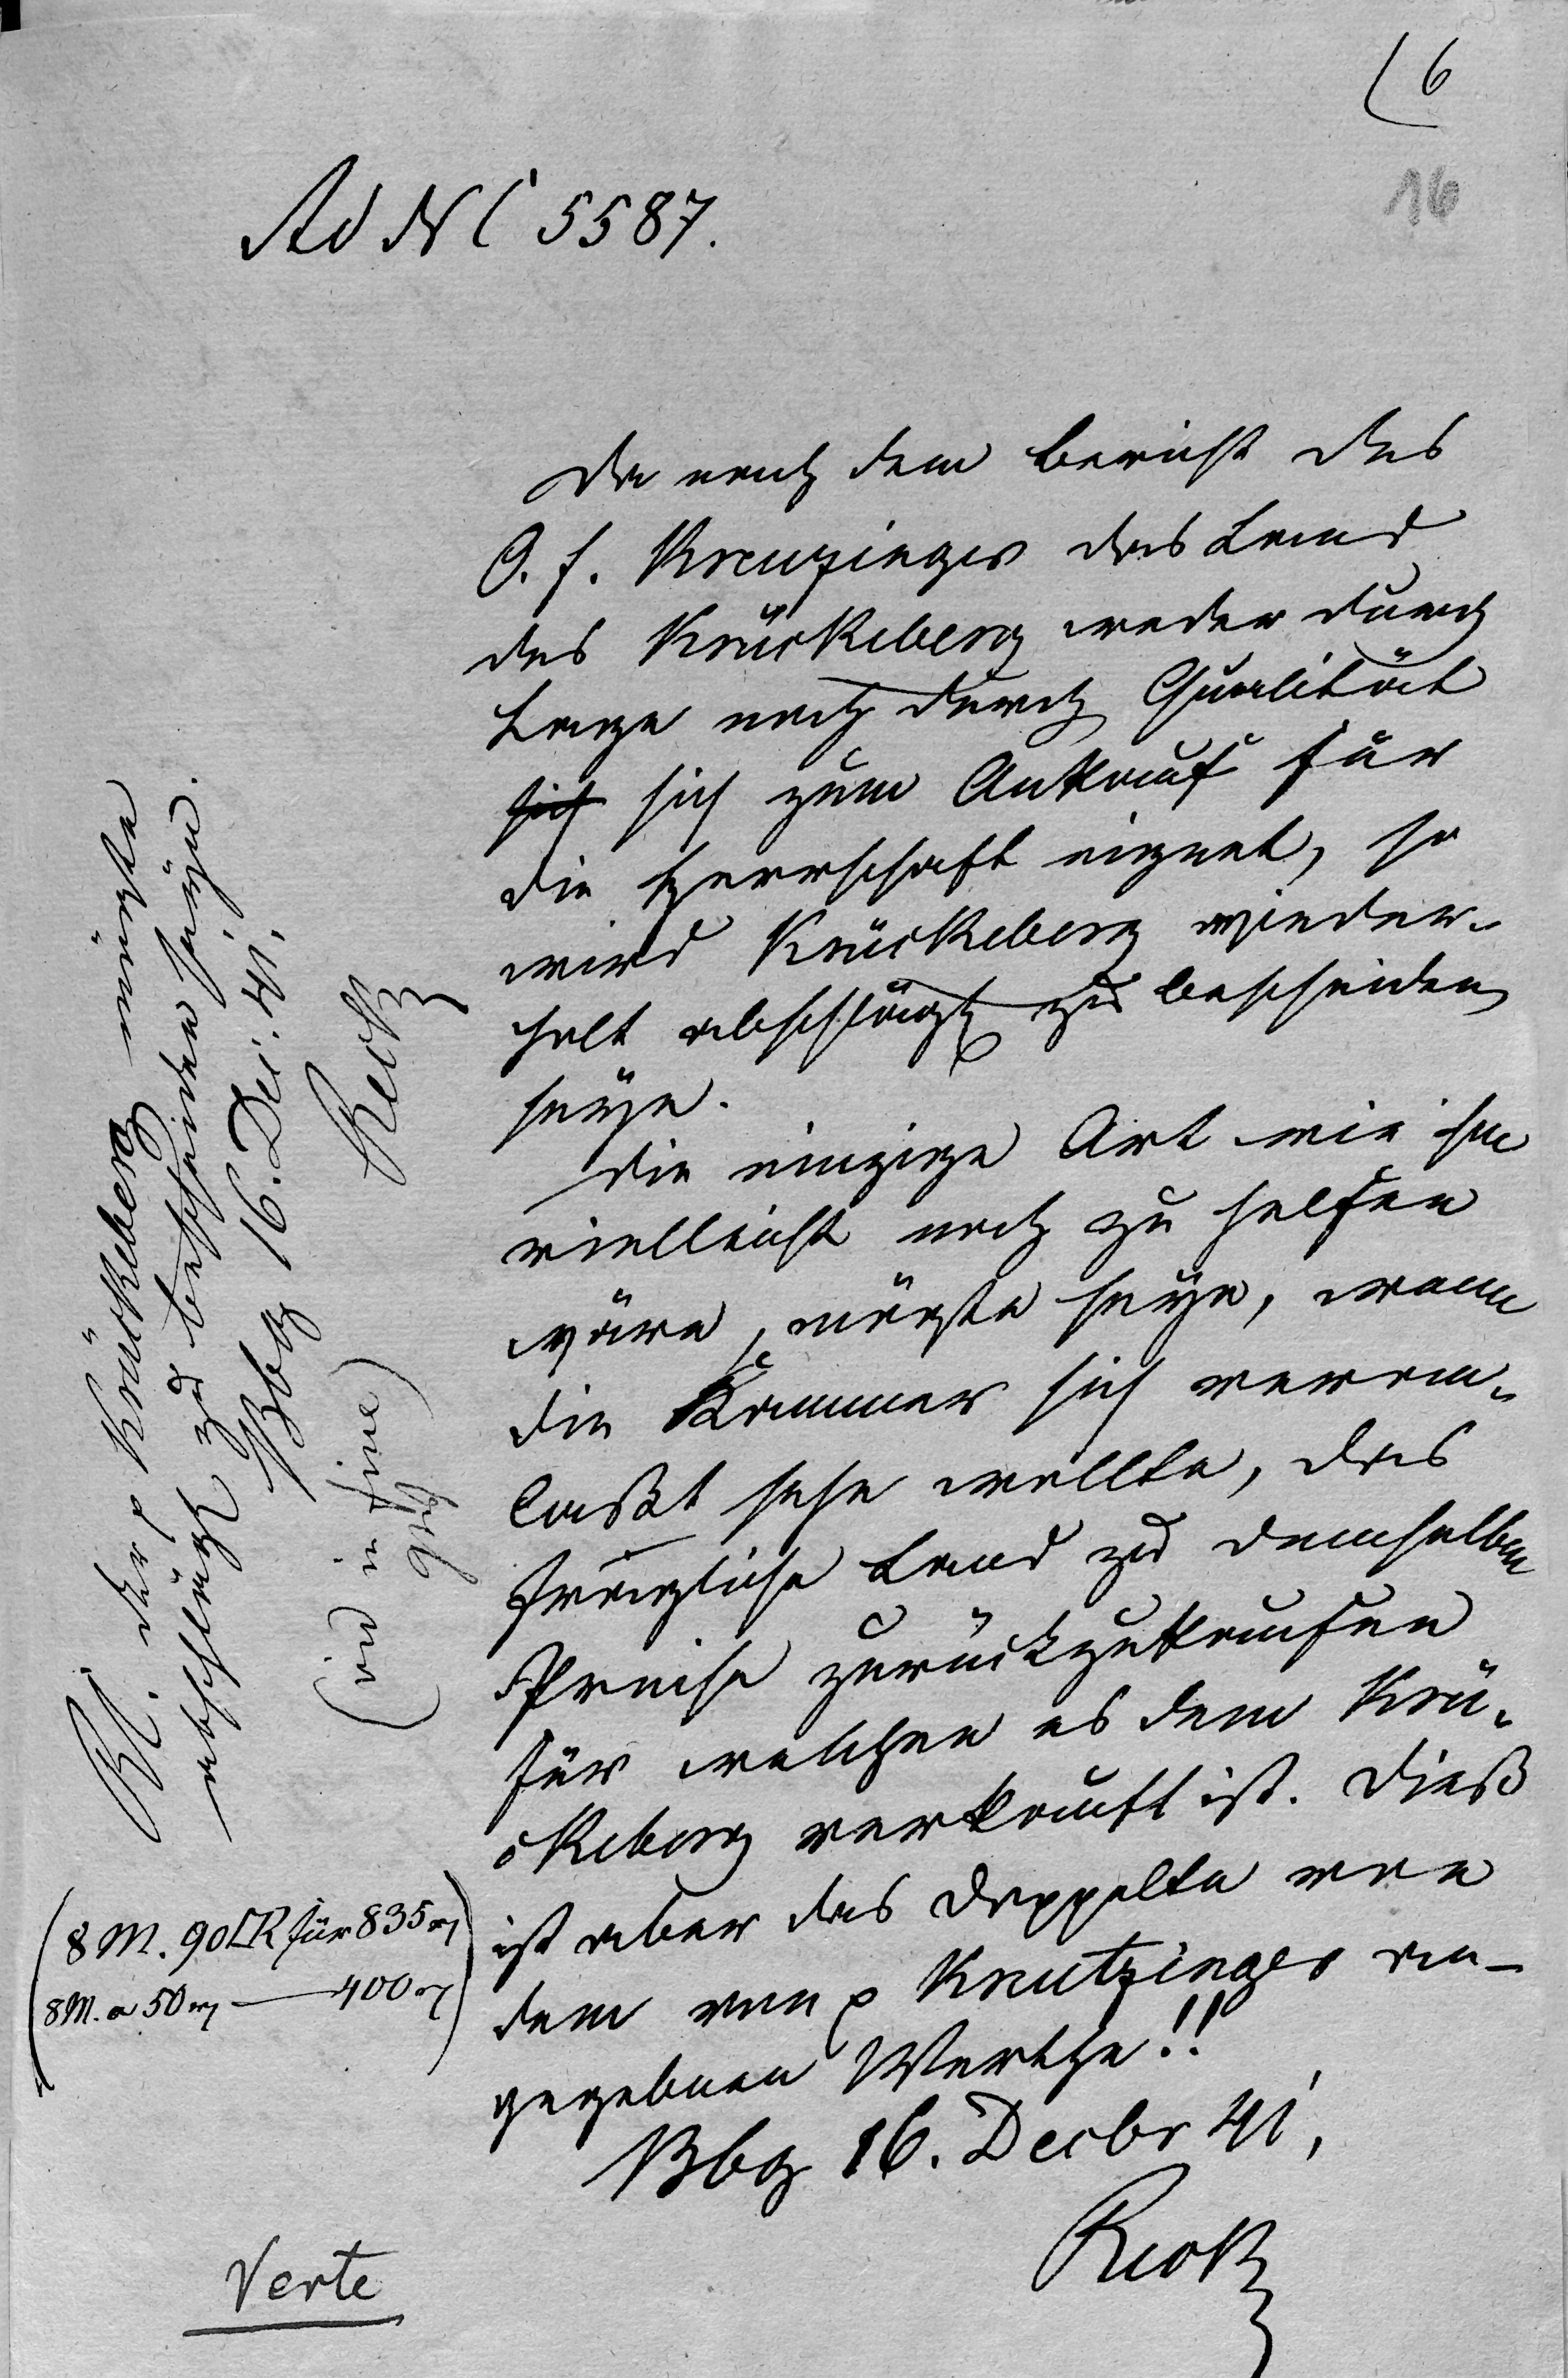 6
16
Ad N 5587.
Da nach dem Bericht des
O. f. Kreuzinger das Land
des Krückeberg weder durch
Lage noch durch Qualität
sich sich zum Ankauf für
die Herrschaft eignet, so
wird Krückeberg wieder-
holt abschlägl zu bescheiden
seyn.
Die einzige Art wie ihm
vielleicht noch zu helfen
wäre, möchte seyn, wenn
die Kammer sich veran-
laßt sehn wollte, das
fragliche Land zu demselben
Preise zurückzukaufen
für welchen es dem Krü-
ckeberg verkauft ist. Dieß
ist aber das Doppelte von
dem von p Kreutzinger an-
gegebnen Werthe!!
Bbg 16. Decbr 41,
Reck
Rl. der p Krückeberg möchte
abschlägl zu bescheiden seyn.
Bbg 16. Dec. 41.
Reck
(ad in fine)
(8 M. 90 □R für 835 rl
8 M. a 50 rl — 400 rl)
Verte